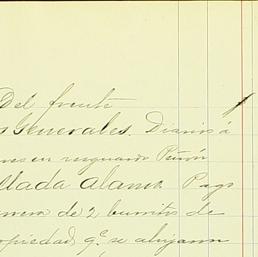 Del frente
s Generales. Diarios á
nes en resguardo Peñón
llada Alama Pago
de 2 burritos de
opiedad q.e se alijaron